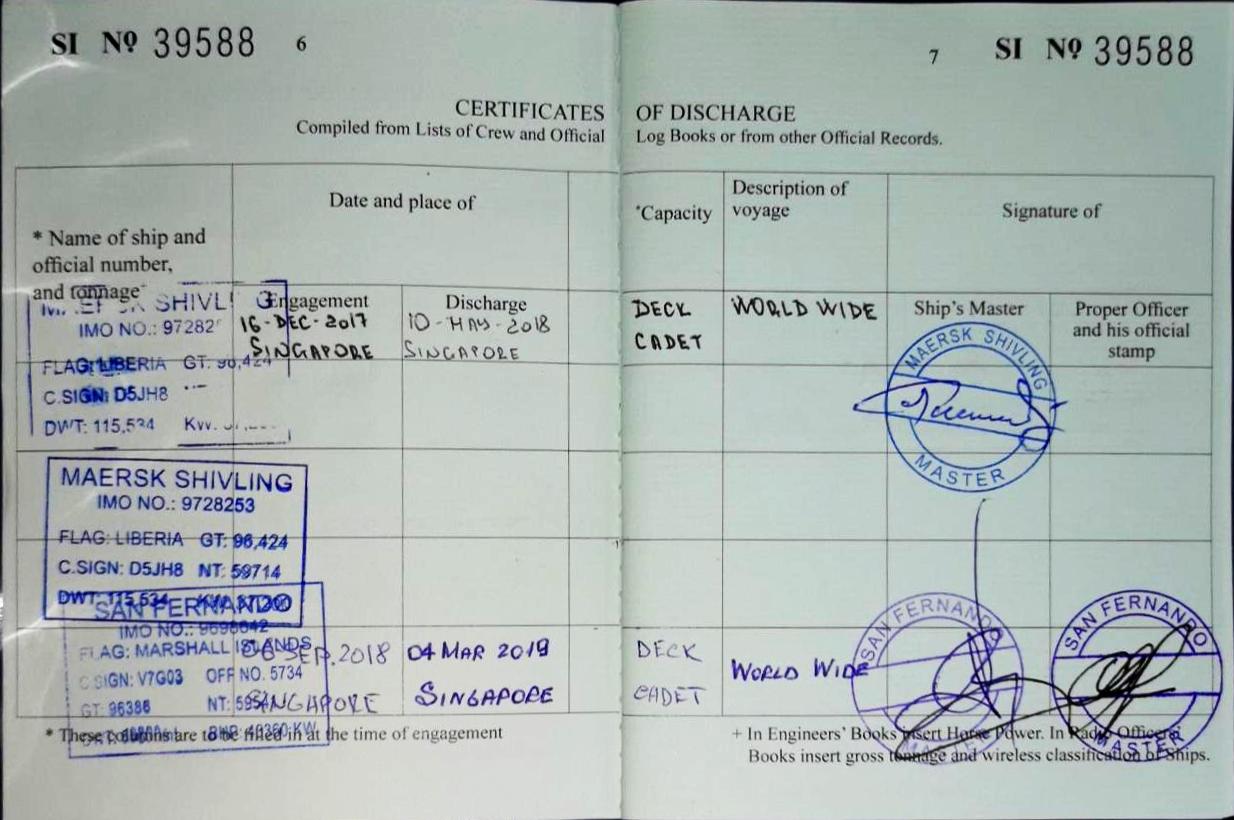 SI Nº 39588 6
7 SI Nº 39588
CERTIFICATES OF DISCHARGE
Compiled from Lists of Crew and Official Log Books or from other Official Records.
* Name of ship and
official number,
and tonnage
Date and place of
Engagement
Discharge
*Capacity
Description of
voyage
Signature of
Ship's Master
Proper Officer
and his official
stamp
SHIVL
IMO NO.: 9728
FLAG: LIBERIA GT: 96,424
C.SIGN: D5JH8
DWT: 115,534
16-DEC-2017
SINGAPORE
10-MAY-2018
SINGAPORE
DECK
CADET
WORLD WIDE
MAERSK SHIVLING
MASTER
MAERSK SHIVLING
IMO NO.: 9728253
FLAG: LIBERIA GT: 96,424
C.SIGN: D5JH8 NT: 59714
DWT: 115,534
SAN FERNANDO
IMO NO.:
FLAG: MARSHALL ISLANDS
C.SIGN: V7G03 OFF NO. 5734
GT: 96386 NT:
SEP.2018
SINGAPORE
04 MAR 2019
SINGAPORE
DECK
CADET
WORLD WIDE
SAN FERNANDO
MASTER
SAN FERNANDO
MASTER
* These columns are to be filled in at the time of engagement
+ In Engineers' Books insert Horse Power. In Radio Officers'
Books insert gross tonnage and wireless classification of Ships.